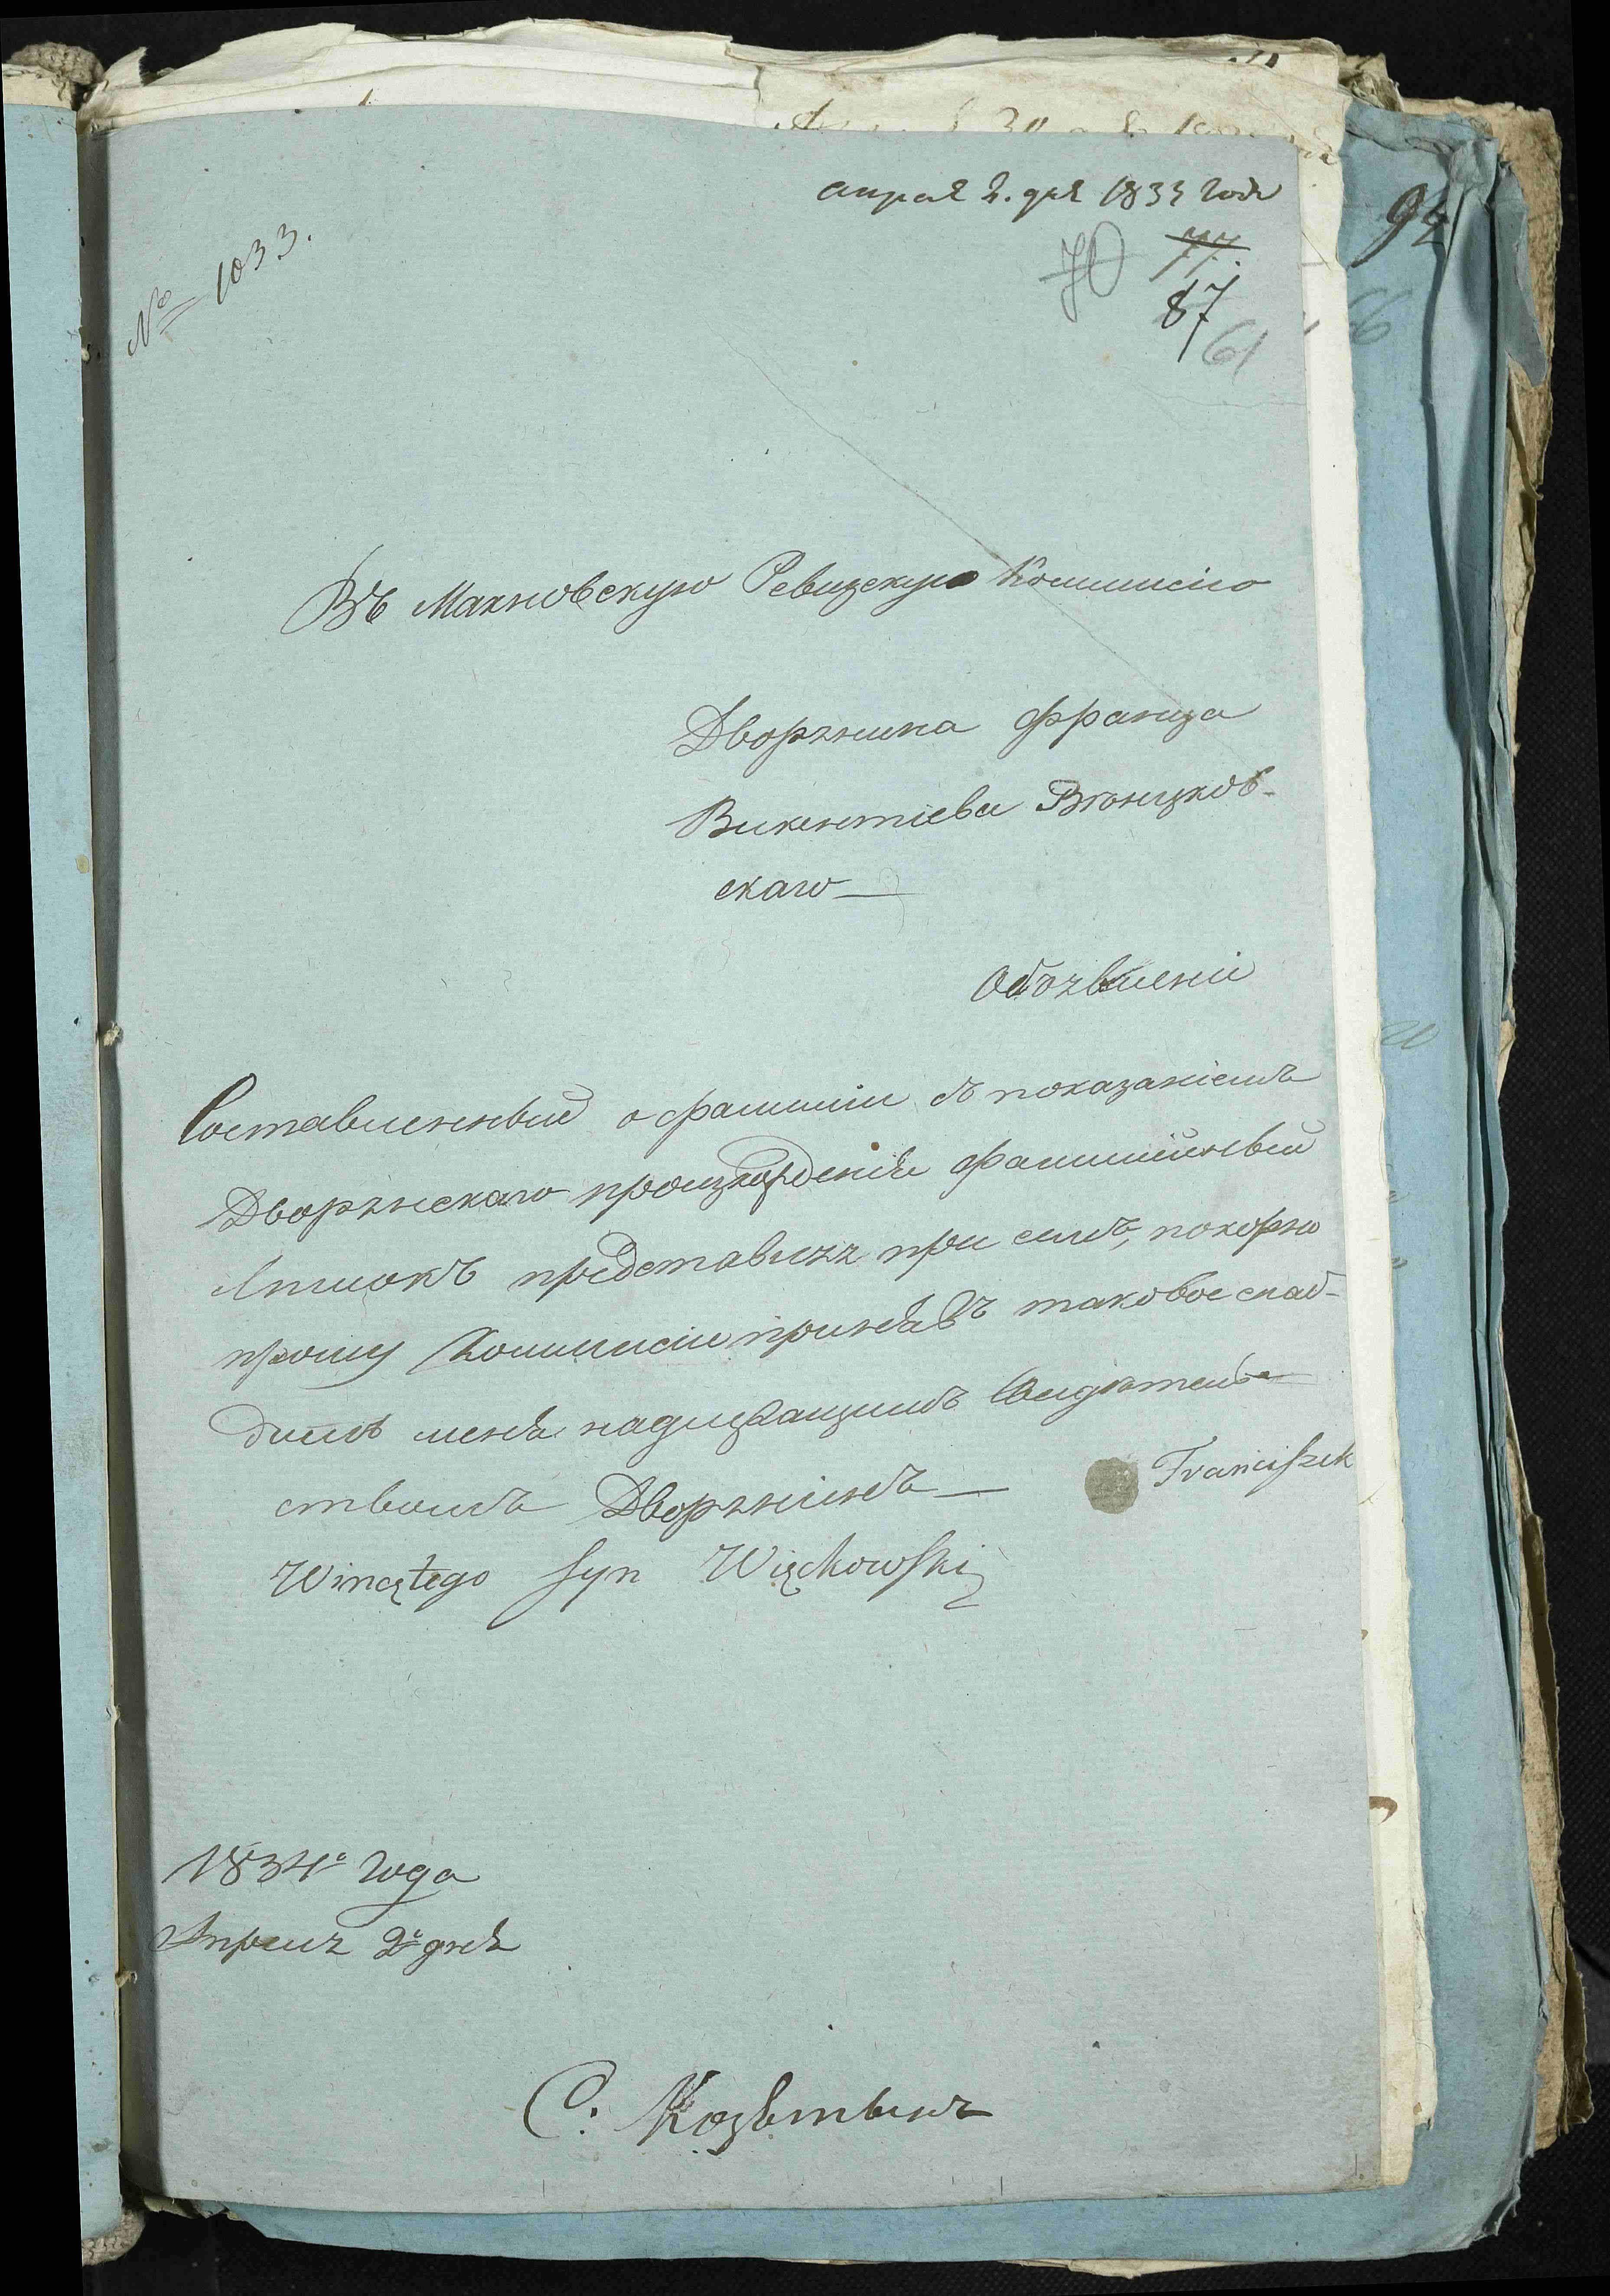 апреля 2. дня 1834 года
№ 1033.
70 77.
87
61
94
66
Въ Махновскую Ревизскую Коммисію
Дворянина Франца
Викентіева Віонцков-
скаго
Обоявленіи
Составленный о фамиліи съ показаніемъ
Дворянскаго произхорденія фамилійный
Списокъ представляя при семъ, покорно
прошу Коммисіи принявъ таковое снаб-
дить меня надлежащимъ Свидѣтель-
ствомъ Дворянинъ Franciszek
Winczętego syn Więckowski
1834º года
Апреля 2º дня
С. Козятынъ